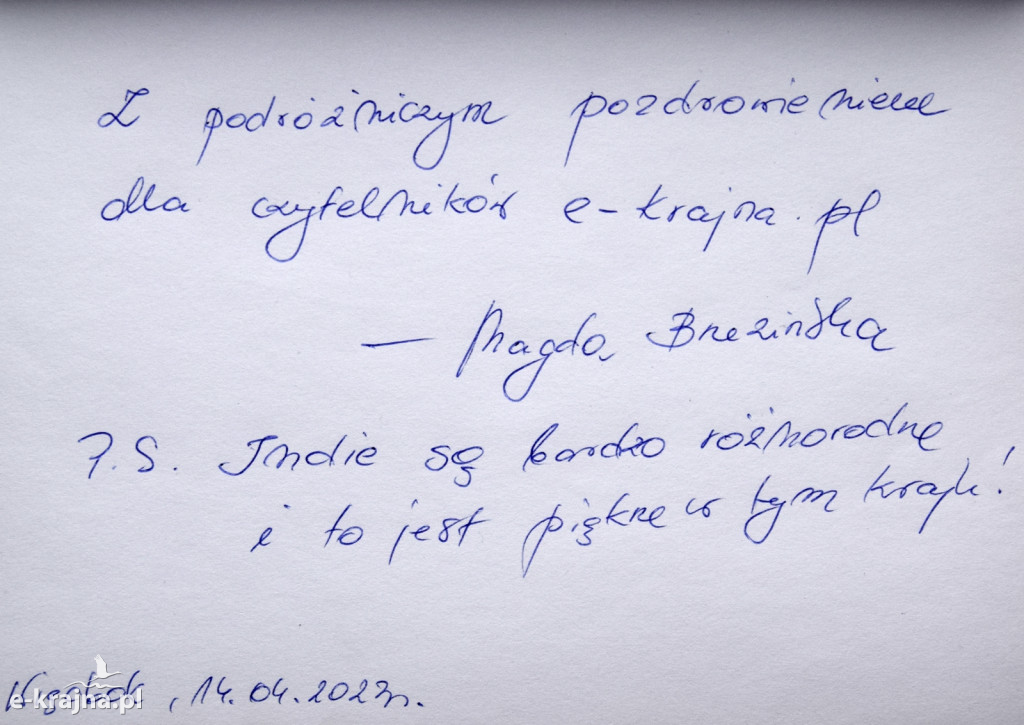 Z podróżniczym pozdrowieniem
dla czytelników e-krajna.pl
— Magda Brezińska
P.S. Indie są bardzo różnorodne
i to jest piękne w tym kraju!
, 14.04.2023r.
e-krajna.pl